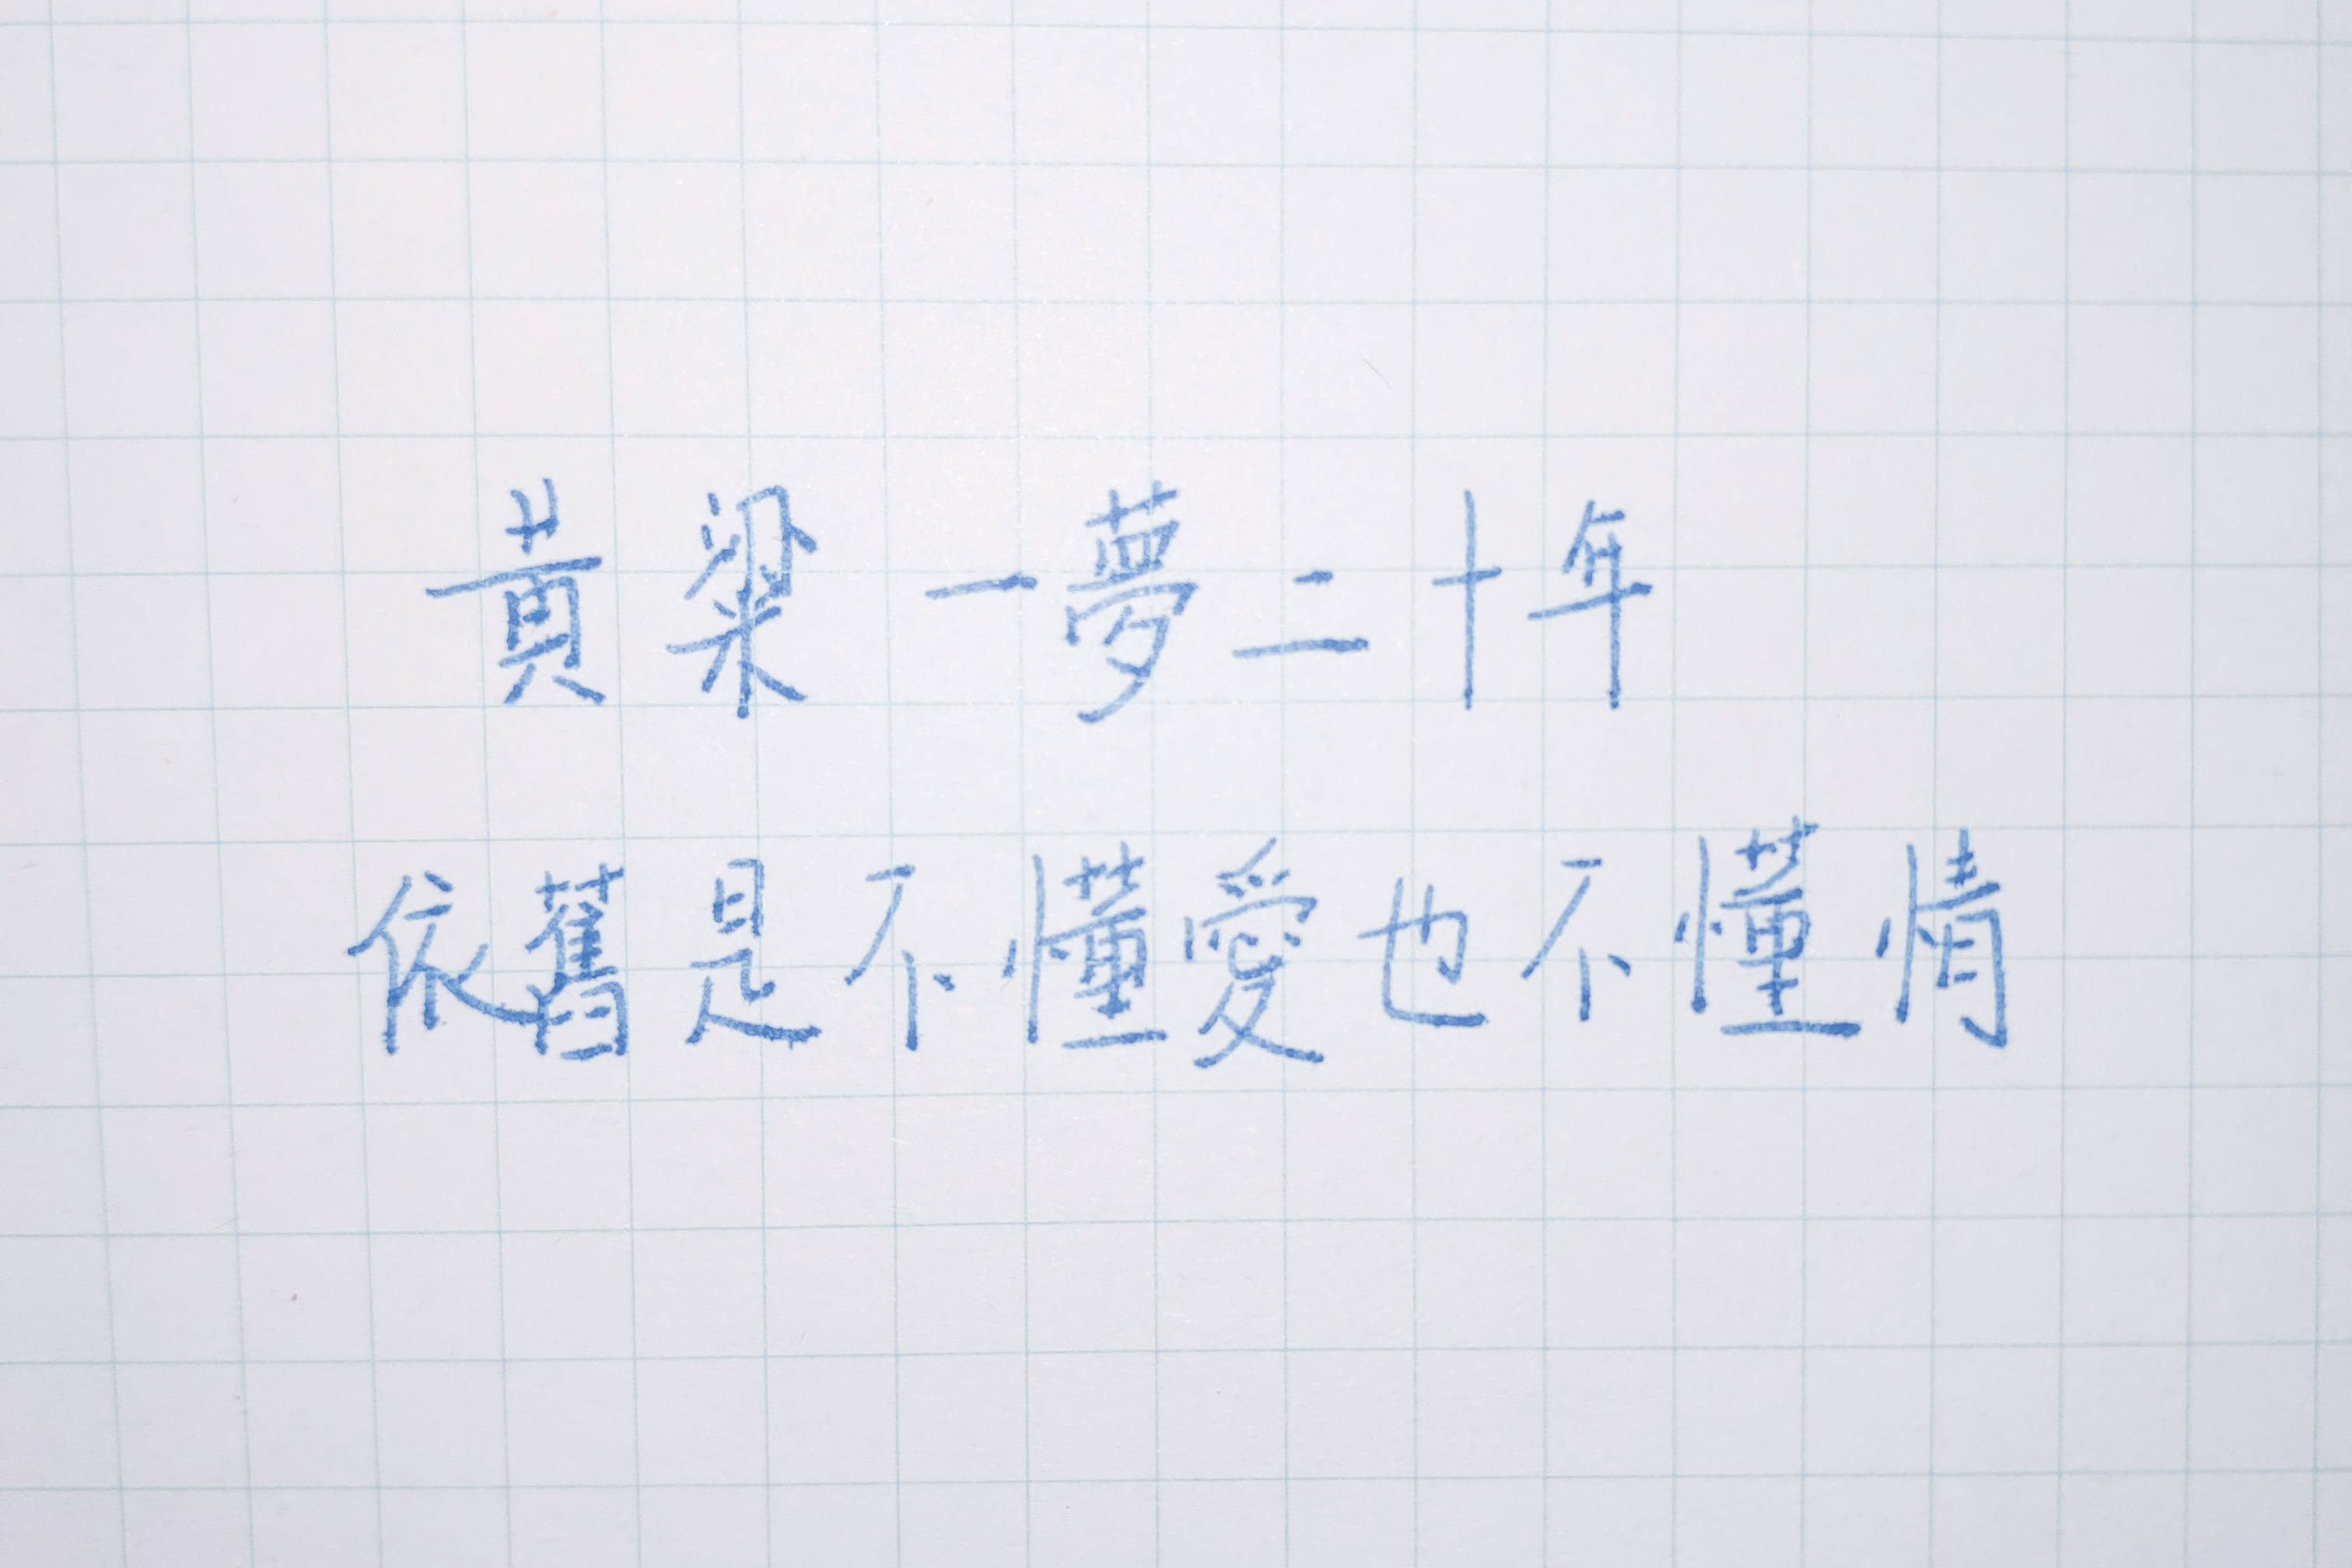 黃粱一夢二十年
依舊是不懂愛也不懂情